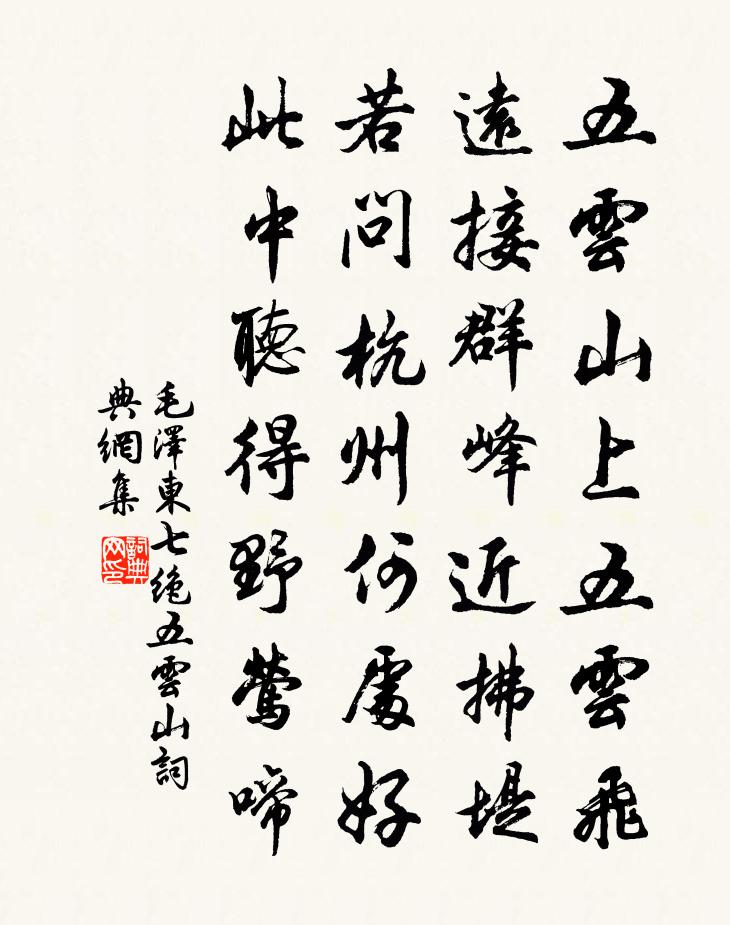 五雲山上五雲飛
遠接群峰近拂堤
若問杭州何處好
此中聽得野鶯啼
毛澤東七絶五雲山詞
典網集
詞典
网印